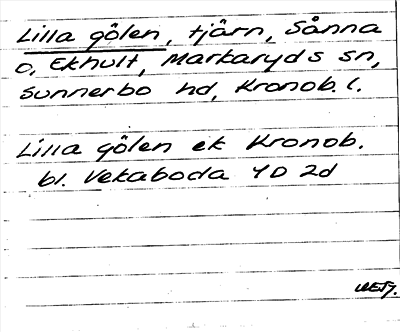 Lilla gölen, tjärn, Sånna
o. Ekhult, Markaryds sn,
Sunnerbo hd, Kronob. l.
Lilla gölen ek Kronob.
bl. Vekaboda 4D 2d